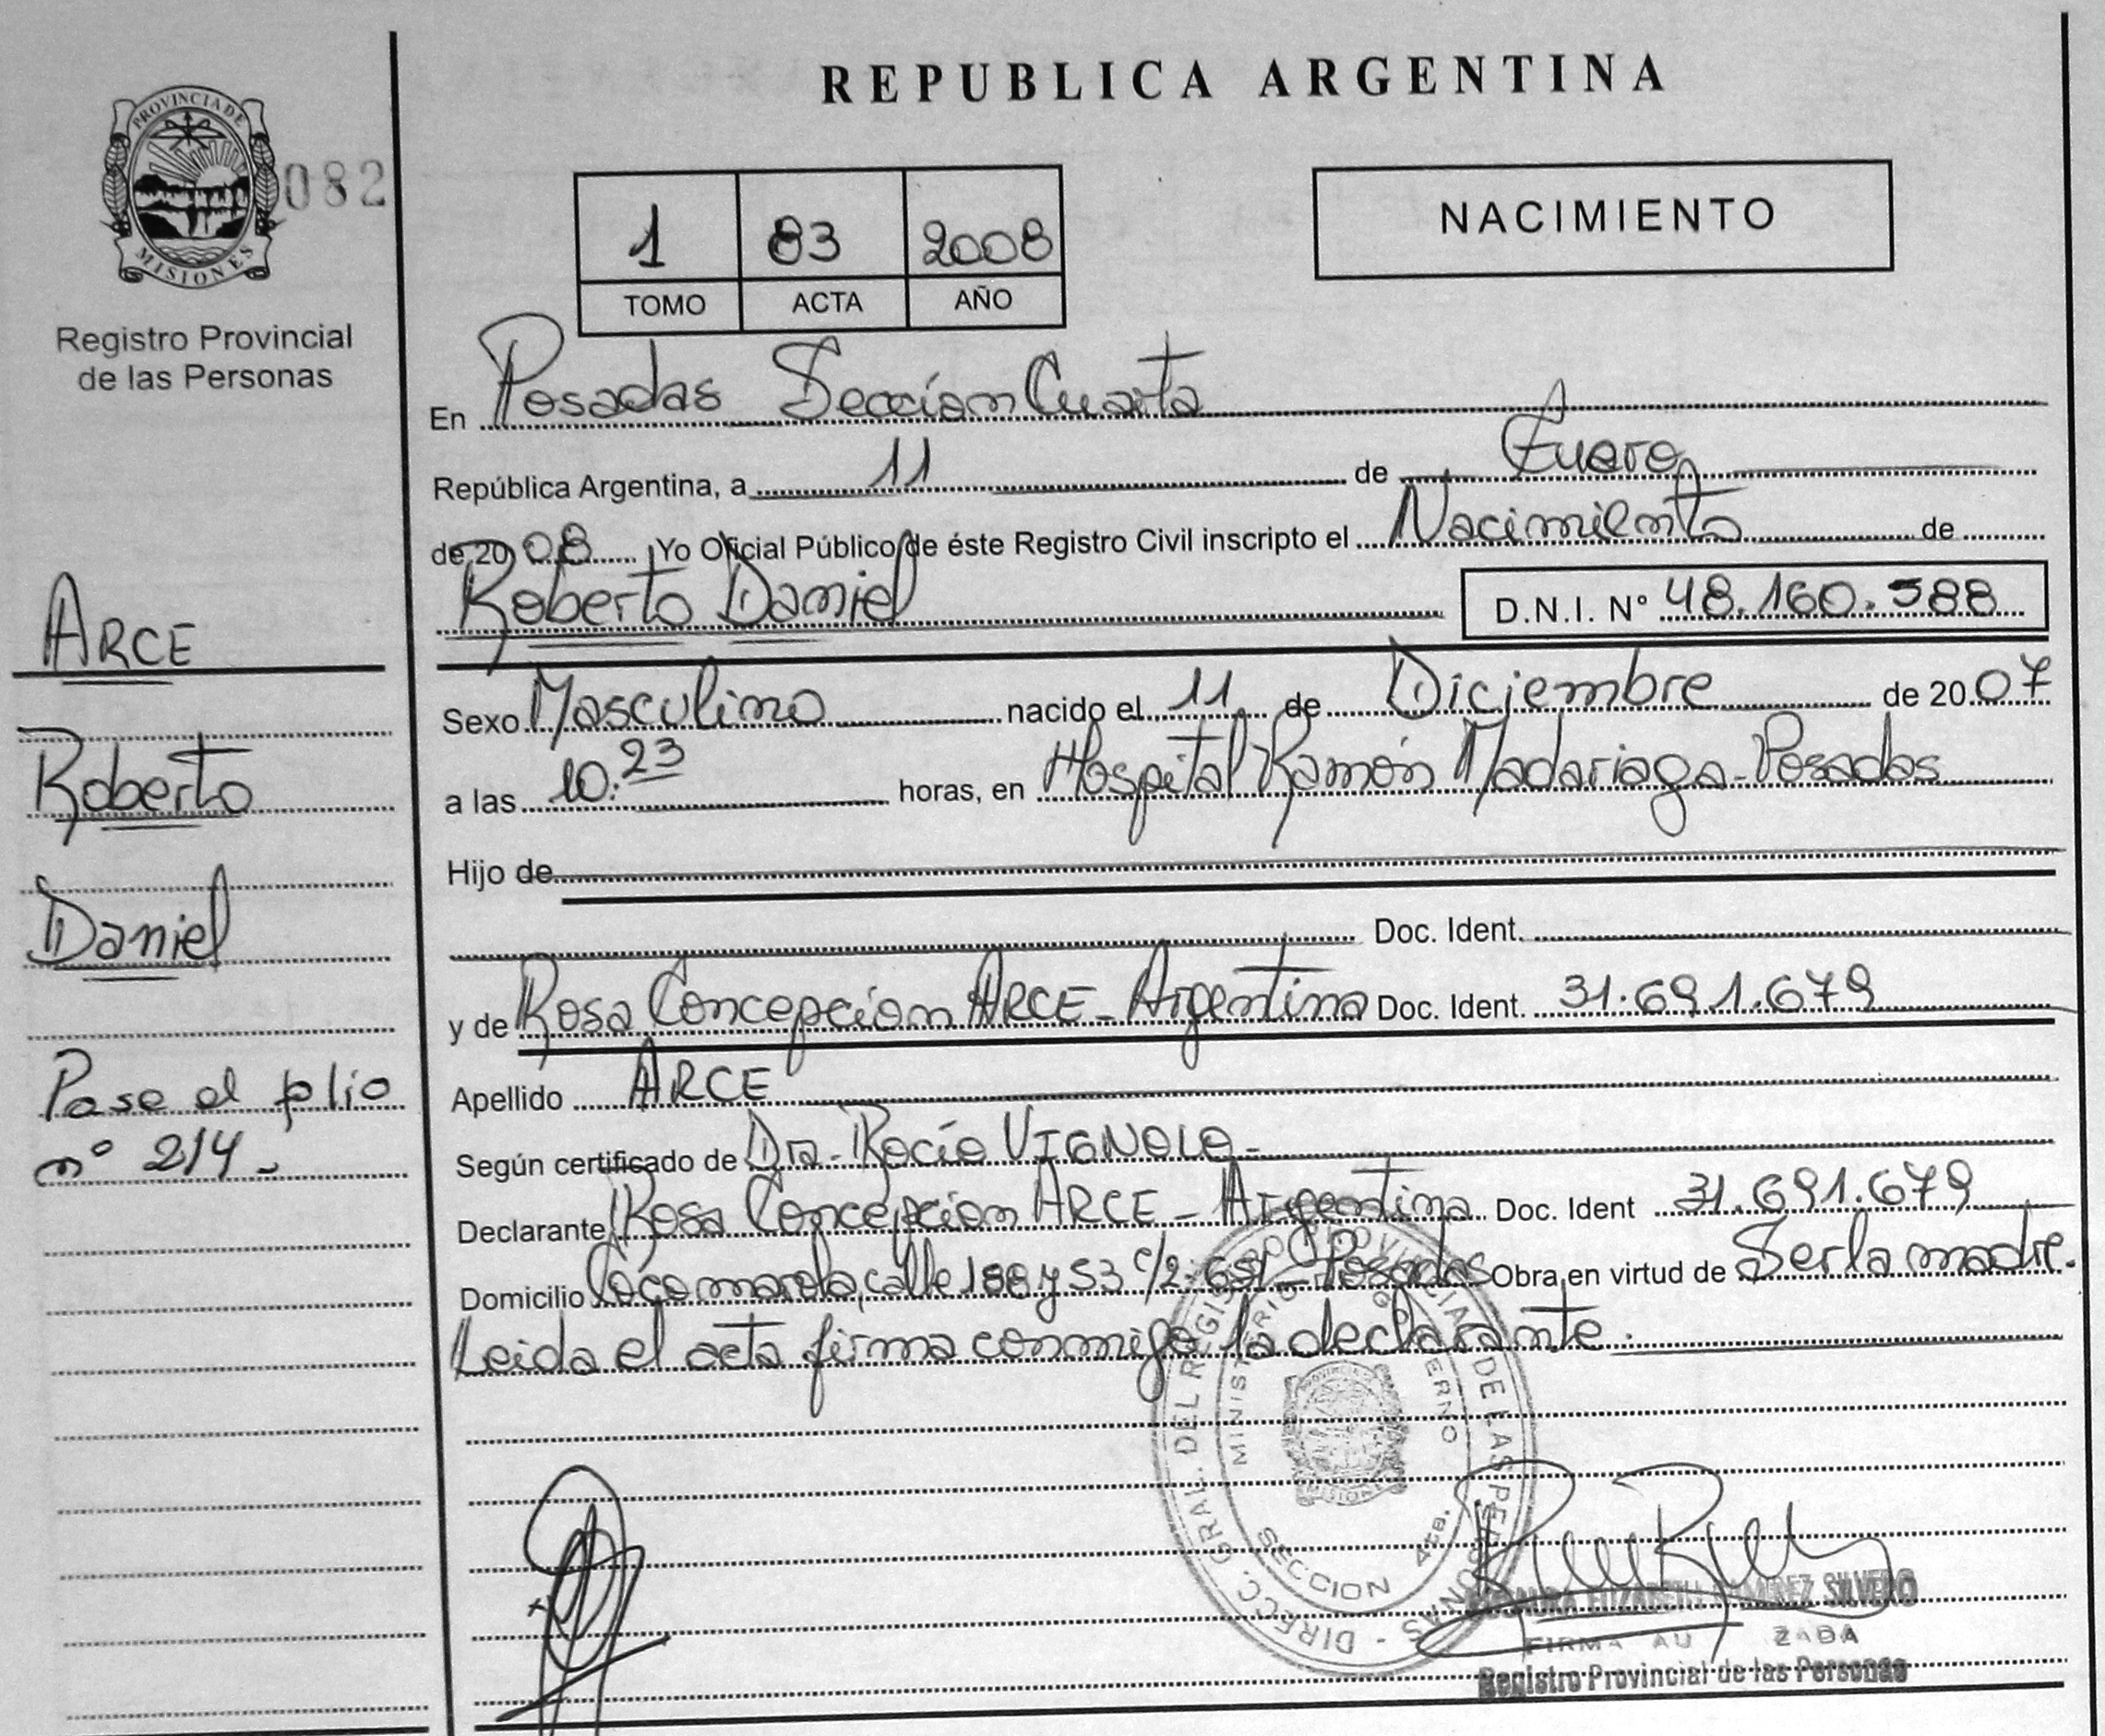 REPUBLICA ARGENTINA
PROVINCIA DE
MISIONES
082
Registro Provincial
de las Personas
1 83 2008
TOMO ACTA AÑO
NACIMIENTO
En Posadas Sección Cuarta
República Argentina, a 11 de Enero
de 2008 Yo Oficial Público de éste Registro Civil inscripto el Nacimiento de
Roberto Daniel D.N.I. N° 48.160.588
Sexo Masculino nacido el 11 de Diciembre de 2007
a las 10:23 horas, en Hospital Ramón Madariaga - Posadas
Hijo de
Doc. Ident.
y de Rosa Concepción ARCE - Argentina Doc. Ident. 31.691.679
Apellido ARCE
Según certificado de Dra. Rocío VIGNOLO -
Declarante Rosa Concepción ARCE - Argentina Doc. Ident 31.691.679
Domicilio Cocomarola, calle 188 y 53 c/2. 651 - Posadas Obra en virtud de Ser la madre.
Leida el acta firma conmigo la declarante.
ARCE
Roberto
Daniel
Pase al plio
n° 214 -
DIRECC. GRAL. DEL REGISTRO PROVINCIAL DE LAS PERSONAS -
MINISTERIO GOBIERNO
SECCION 4ta.
ELIZABETH RAMIREZ SILVERO
FIRMA AU ZADA
Registro Provincial de las Personas